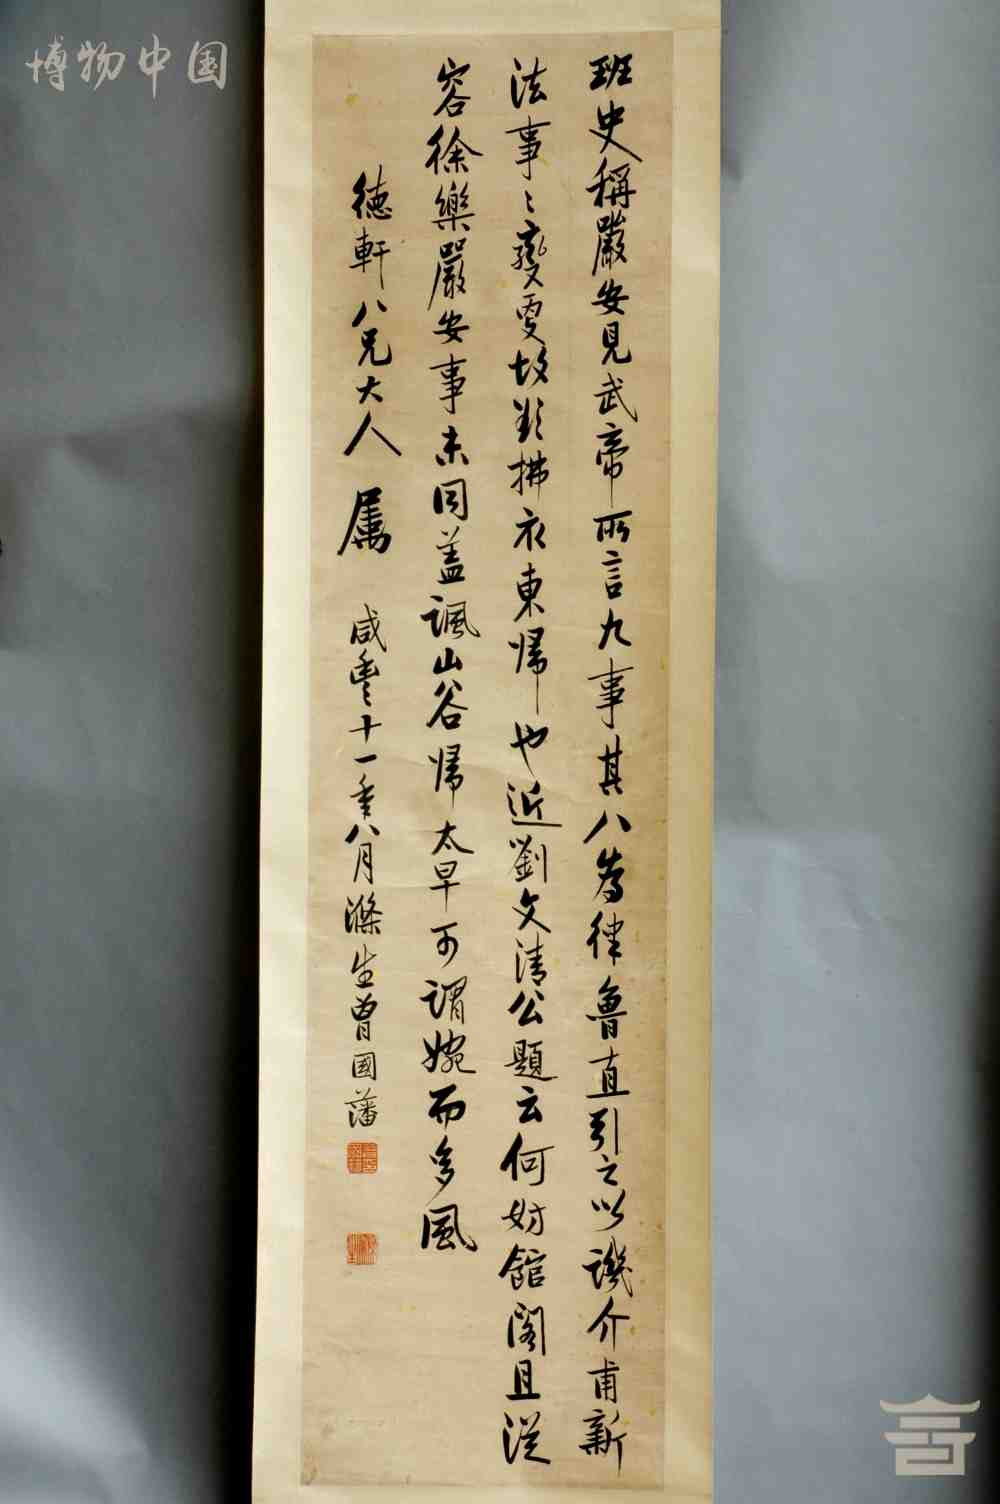 博物中国
班史稱嚴安見武帝所言九事其八為律魯直引之以譏介甫新
法事〻變更故欲拂衣東歸也近劉文清公題云何妨館閣且從
容徐樂嚴安事未同蓋諷山谷歸太早可謂婉而多風
德軒八兄大人 屬 咸豐十一年八月滌生曾國藩